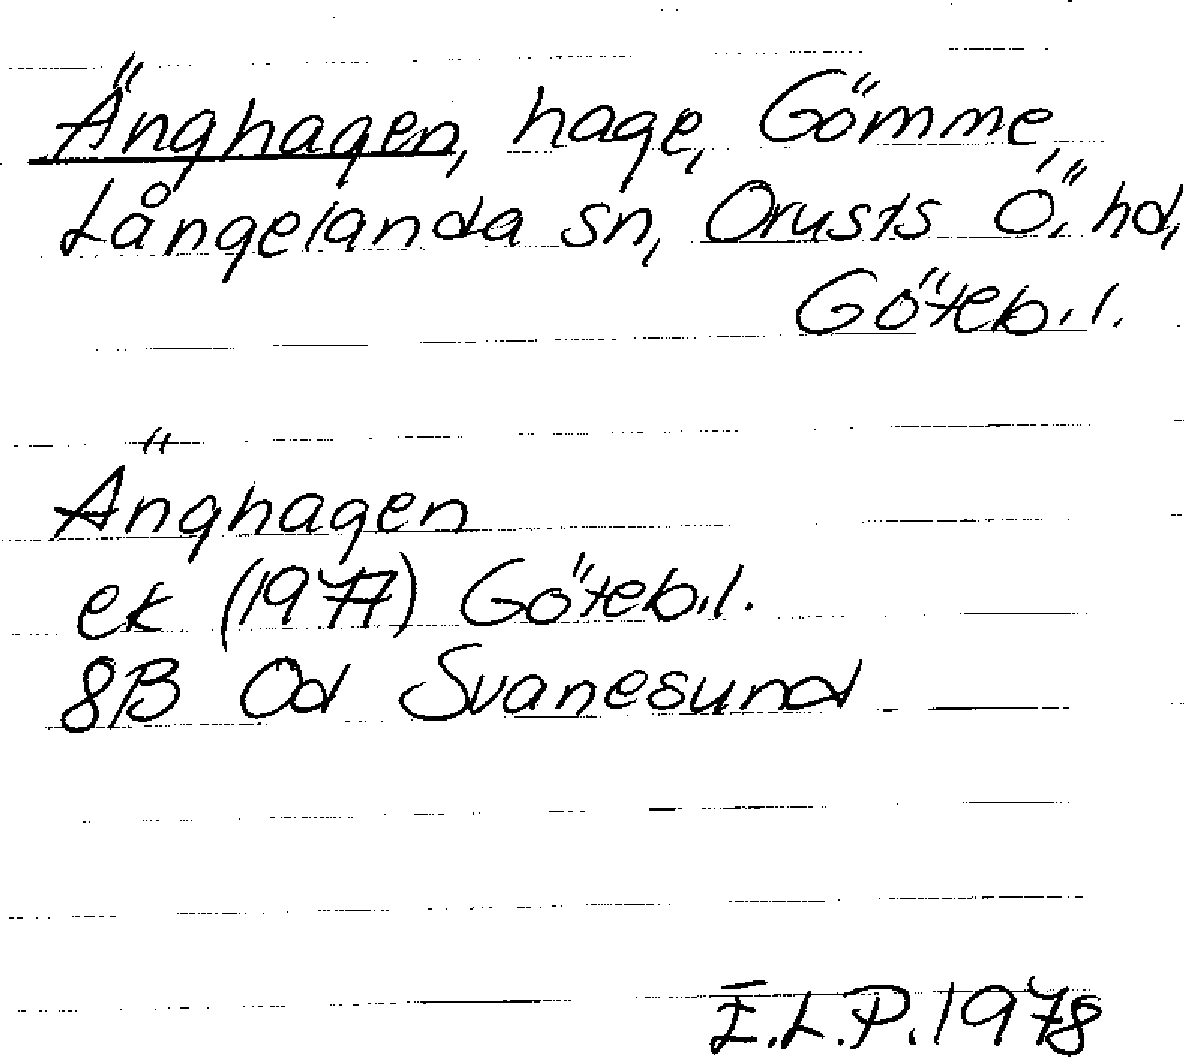 Änghagen, hage, Gömme,
Långelanda sn, Orusts Ö. hd,
Göteb. l.
Änghagen
ek (1977) Göteb. l.
8B 0d Svanesund
I.L.P. 1978